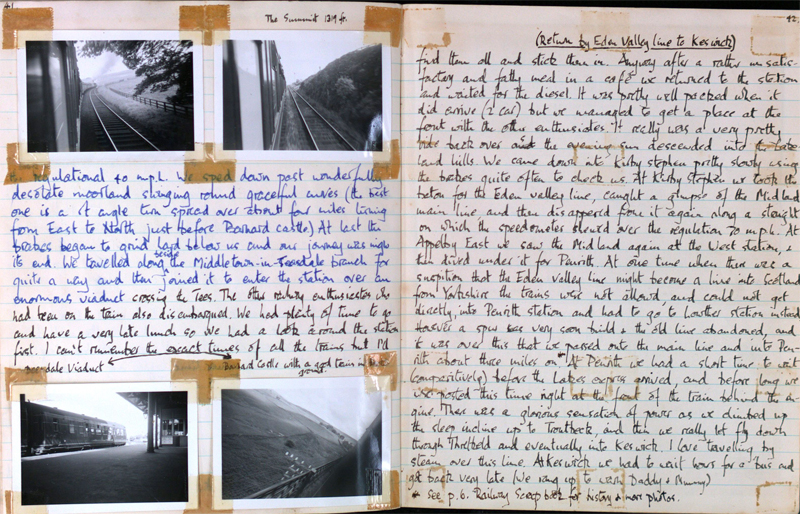 41
The Summit 1319 ft.
regulational 40 m.p.h. We sped down past wonderfully
desolate moorland swinging round graceful curves (the best
one is a rt angle turn spread over about four miles turning
from East to North just before Barnard castle) At last the
brakes began to grind, laid below us and our journey was nigh
its end. We travelled along beside the Middleton-in-Teesdale branch for
quite a way and then joined it to enter the station over an
enormous viaduct crossing the Tees. The other railway enthusiasts who
had been on the train also disembarked. We had plenty of time to go
and have a very late lunch so we had a look around the station
first. I can't remember the exact times of all the trains but I'll
Viaduct
Barnard Castle with a good train in
42
(Return by Eden Valley line to Keswick)
find them all and stick them in. Anyway after a rather unsatis-
factory and fatty meal in a café we returned to the station
and waited for the diesel. It was pretty well packed when it
did arrive (2 car) but we managed to get a place at the
front with the other enthusiasts. It really was a very pretty
ride back over and the evening sun descended into the Lake-
land hills. We came down into Kirby Stephen pretty slowly using
the brakes quite often to check us. At Kirby Stephen we took the
baton for the Eden valley line, caught a glimpse of the Midland
main line, and then disappeared from it again along a straight
on which the speedometer showed over the regulation 70 m.p.h. At
Appleby East we saw the Midland again at the West station, &
then dived under it for Penrith. At one time when there was a
suspition that the Eden Valley line might become a line into Scotland
from Yorkshire the trains were not allowed, and could not get
directly into Penrith station and had to go to Lowther station instead
However a spur was very soon build & the old line abandoned, and
it was over this that we passed onto the main line and into Pen-
rith about three miles on* At Penrith we had a short time to wait
(competitively) before the Lakes express arrived, and before long we
were posted this time right at the front of the train behind the en-
gine. There was a glorious sensation of power as we climbed up
the steep incline up to Troutbeck, and then we really let fly down
through Threlkeld and eventually into Keswick. I love travelling by
steam over this line. At Keswick we had to wait hours for a bus and
got back very late (We rang up to warn Daddy & Mummy)
* see p. 6. Railway Scrap book for history & more photos.